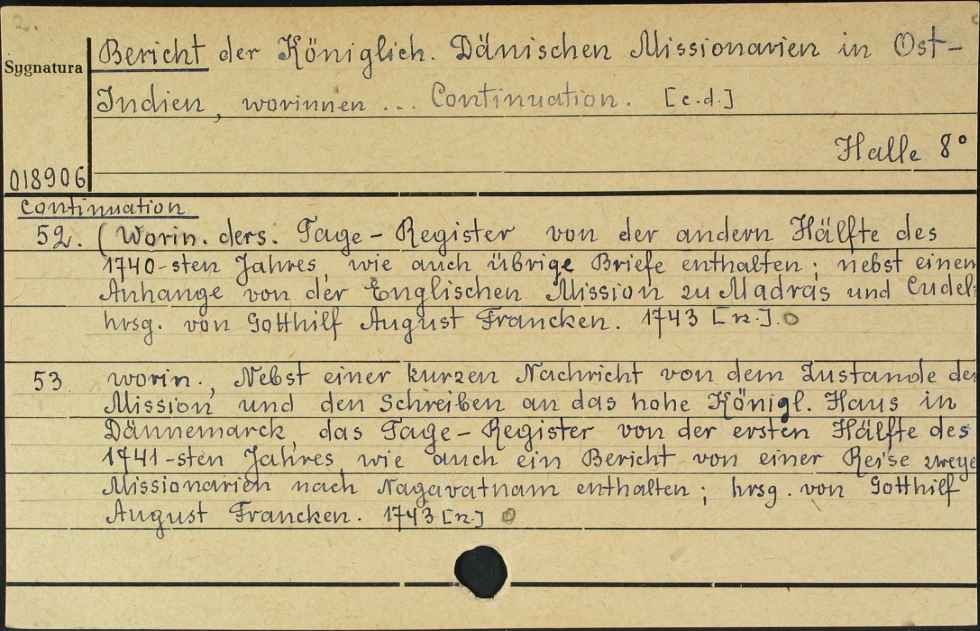 2.
Sygnatura
Bericht der Königlich. Dänischen Missionarien in Ost-
Indien, worinnen ... Continuation. [c.d.]
Halle 8°
018906
Continuation
52. (Worin. ders. Tage-Register von der andern Hälfte des
1740-sten Jahres, wie auch übrige Briefe enthalten; nebst einen
Anhange von der Englischen Mission zu Madras und Cudel-
hrsg. von Gotthilf August Francken. 1743 [n.]. O
53 worin., Nebst einer kurzen Nachricht von dem Zustande der
Mission und den Schreiben an das hohe Königl. Haus in
Dännemarck, das Tage-Register von der ersten Hälfte des
1741-sten Jahres, wie auch ein Bericht von einer Reise zweye
Missionarien nach Nagavatnam enthalten; hrsg. von Gotthilf
August Francken. 1743 [n.] O